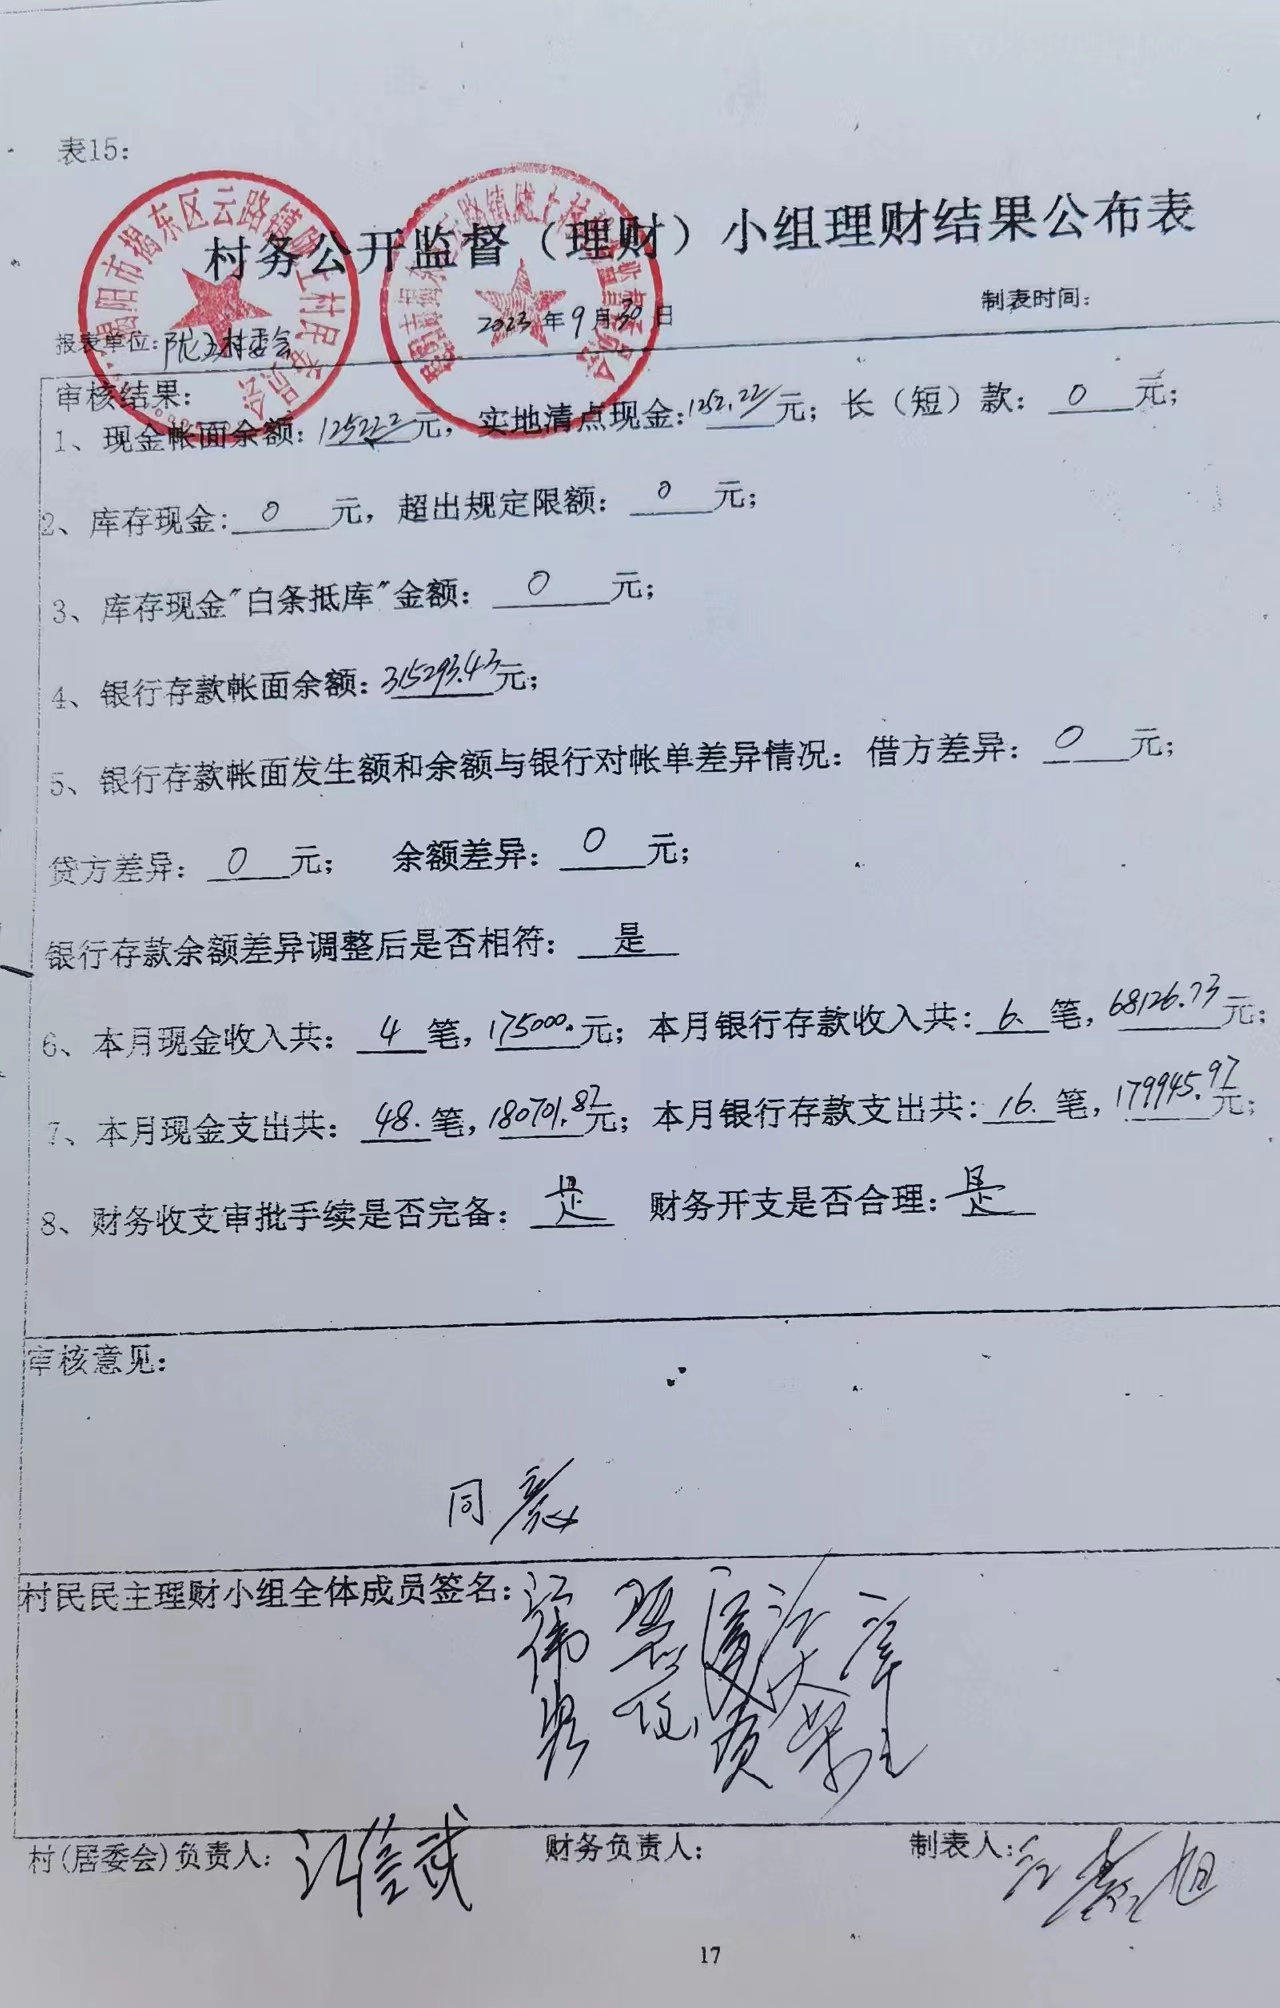 表15:
村务公开监督（理财）小组理财结果公布表
制表时间:
报表单位: 陇上村委会 2023年9月30日
揭阳市揭东区云路镇陇上村民委员会
审核结果:
1、现金帐面余额: 1252.22元, 实地清点现金: 1252.22元; 长（短）款: 0元;
2、库存现金: 0元, 超出规定限额: 0元;
3、库存现金"白条抵库"金额: 0元;
4、银行存款帐面余额: 315293.43元;
5、银行存款帐面发生额和余额与银行对帐单差异情况: 借方差异: 0元;
贷方差异: 0元; 余额差异: 0元;
银行存款余额差异调整后是否相符: 是
6、本月现金收入共: 4笔, 175000.元; 本月银行存款收入共: 6.笔, 68126.73元;
7、本月现金支出共: 48.笔, 180701.87元; 本月银行存款支出共: 16.笔, 179945.97元;
8、财务收支审批手续是否完备: 是 财务开支是否合理: 是
审核意见:
同意
村民民主理财小组全体成员签名:
村(居委会)负责人: 江信武 财务负责人: 制表人:
17